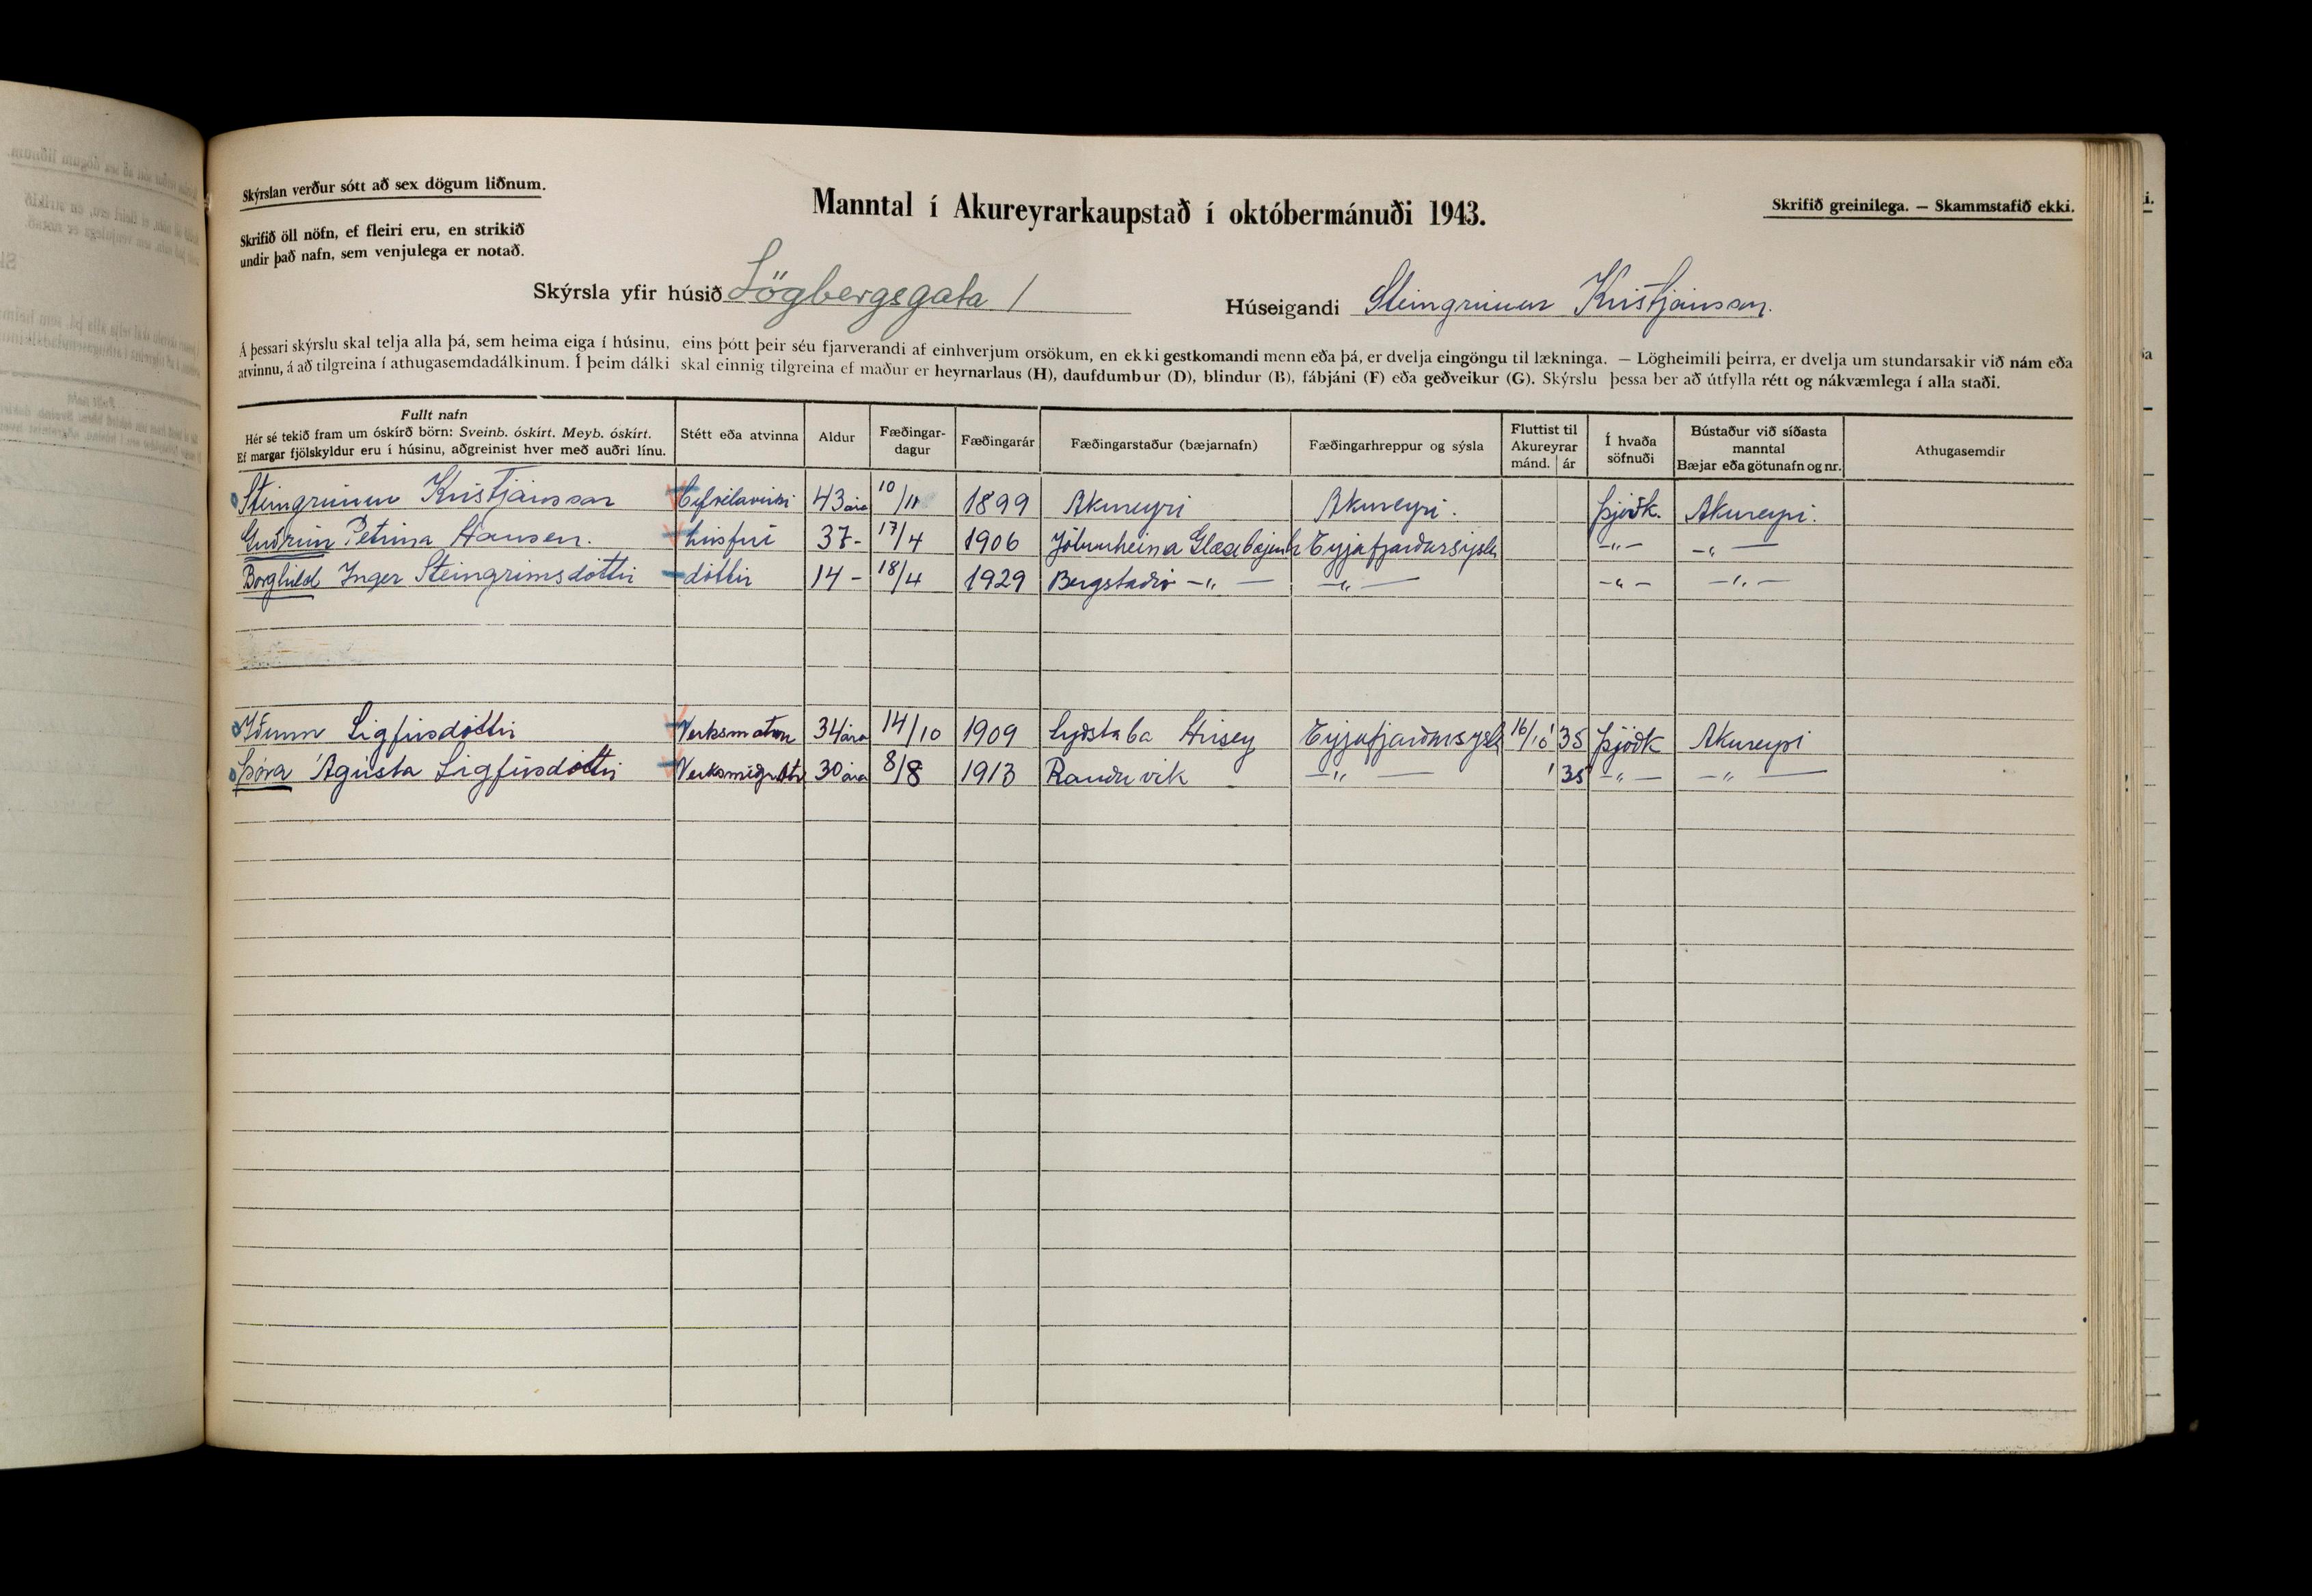 Skýrslan verður sótt að sex dögum liðnum.
Manntal í Akureyrarkaupstað í októbermánuði 1943.
Skrifið greinilega. — Skammstafið ekki.
Skrifið öll nöfn, ef fleiri eru, en strikið
undir það nafn, sem venjulega er notað.
Skýrsla yfir húsið Lögbergsgata 1
Húseigandi Steingrímur Kristjánsson.
Á þessari skýrslu skal telja alla þá, sem heima eiga í húsinu, eins þótt þeir séu fjarverandi af einhverjum orsökum, en ekki gestkomandi menn eða þá, er dvelja eingöngu til lækninga. — Lögheimili þeirra, er dvelja um stundarsakir við nám eða
atvinnu, á að tilgreina í athugasemdadálkinum. Í þeim dálki skal einnig tilgreina ef maður er heyrnarlaus (H), daufdumbur (D), blindur (B), fábjáni (F) eða geðveikur (G). Skýrslu þessa ber að útfylla rétt og nákvæmlega í alla staði.
Fullt nafn
Hér sé tekið fram um óskírð börn: Sveinb. óskírt. Meyb. óskírt.
Ef margar fjölskyldur eru í húsinu, aðgreinist hver með auðri línu.
Stétt eða atvinna
Aldur
Fæðingar-
dagur
Fæðingarár
Fæðingarstaður (bæjarnafn)
Fæðingarhreppur og sýsla
Fluttist til
Akureyrar
mánd. ár
Í hvaða
söfnuði
Bústaður við síðasta
manntal
Bæjar eða götunafn og nr.
Athugasemdir
Steingrímur Kristjánsson 43 ára 10/11 1899 Akureyri Akureyri. Þjóðk. Akureyri.
Guðrún Petrína Hansen. húsfrú 37- 17/4 1906 Eyjafjarðarsýsla -„- -„-
Borghild Inger Steingrímsdóttir dóttir 14- 18/4 1929 Bergstaðir -„- -„- -„- -„-
Iðunn Sigfúsdóttir 34 ára 14/10 1909 Syðstabæ Hrísey Eyjafjarðarsýsla 16/10 35 Þjóðk Akureyri
Þóra Ágústa Sigfúsdóttir 30 ára 8/8 1913 Rauðuvík -„- 35 -„- -„-